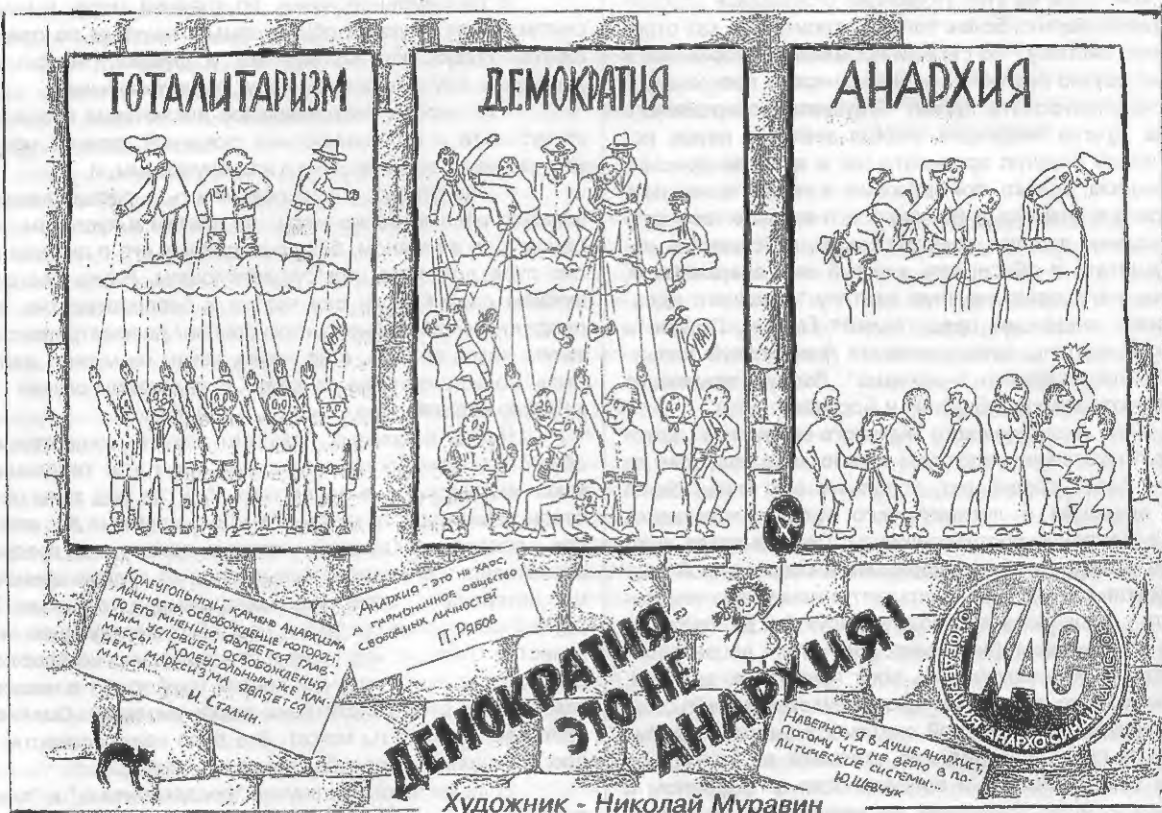 ТОТАЛИТАРИЗМ
ДЕМОКРАТИЯ
АНАРХИЯ
КРАЕУГОЛЬНЫЙ КАМЕНЬ АНАРХИЗМА
- ЛИЧНОСТЬ, ОСВОБОЖДЕНИЕ КОТОРОЙ,
ПО ЕГО МНЕНИЮ, ЯВЛЯЕТСЯ ГЛАВ-
НЫМ УСЛОВИЕМ ОСВОБОЖДЕНЬЯ
МАССЫ. КРАЕУГОЛЬНЫМ ЖЕ КАМ-
НЕМ МАРКСИЗМА ЯВЛЯЕТСЯ
МАССА...
И. СТАЛИН
АНАРХИЯ - ЭТО НЕ ХАОС,
А ГАРМОНИЧНОЕ ОБЩЕСТВО
СВОБОДНЫХ ЛИЧНОСТЕЙ
П. РЯБОВ
ДЕМОКРАТИЯ
ЭТО НЕ
АНАРХИЯ!
КАС
КОНФЕДЕРАЦИЯ АНАРХО-СИНДИКАЛИСТОВ
НАВЕРНОЕ, Я В ДУШЕ АНАРХИСТ,
ПОТОМУ ЧТО НЕ ВЕРЮ В ПО-
ЛИТИЧЕСКИЕ СИСТЕМЫ...
Ю. ШЕВЧУК
Художник - Николай Муравин